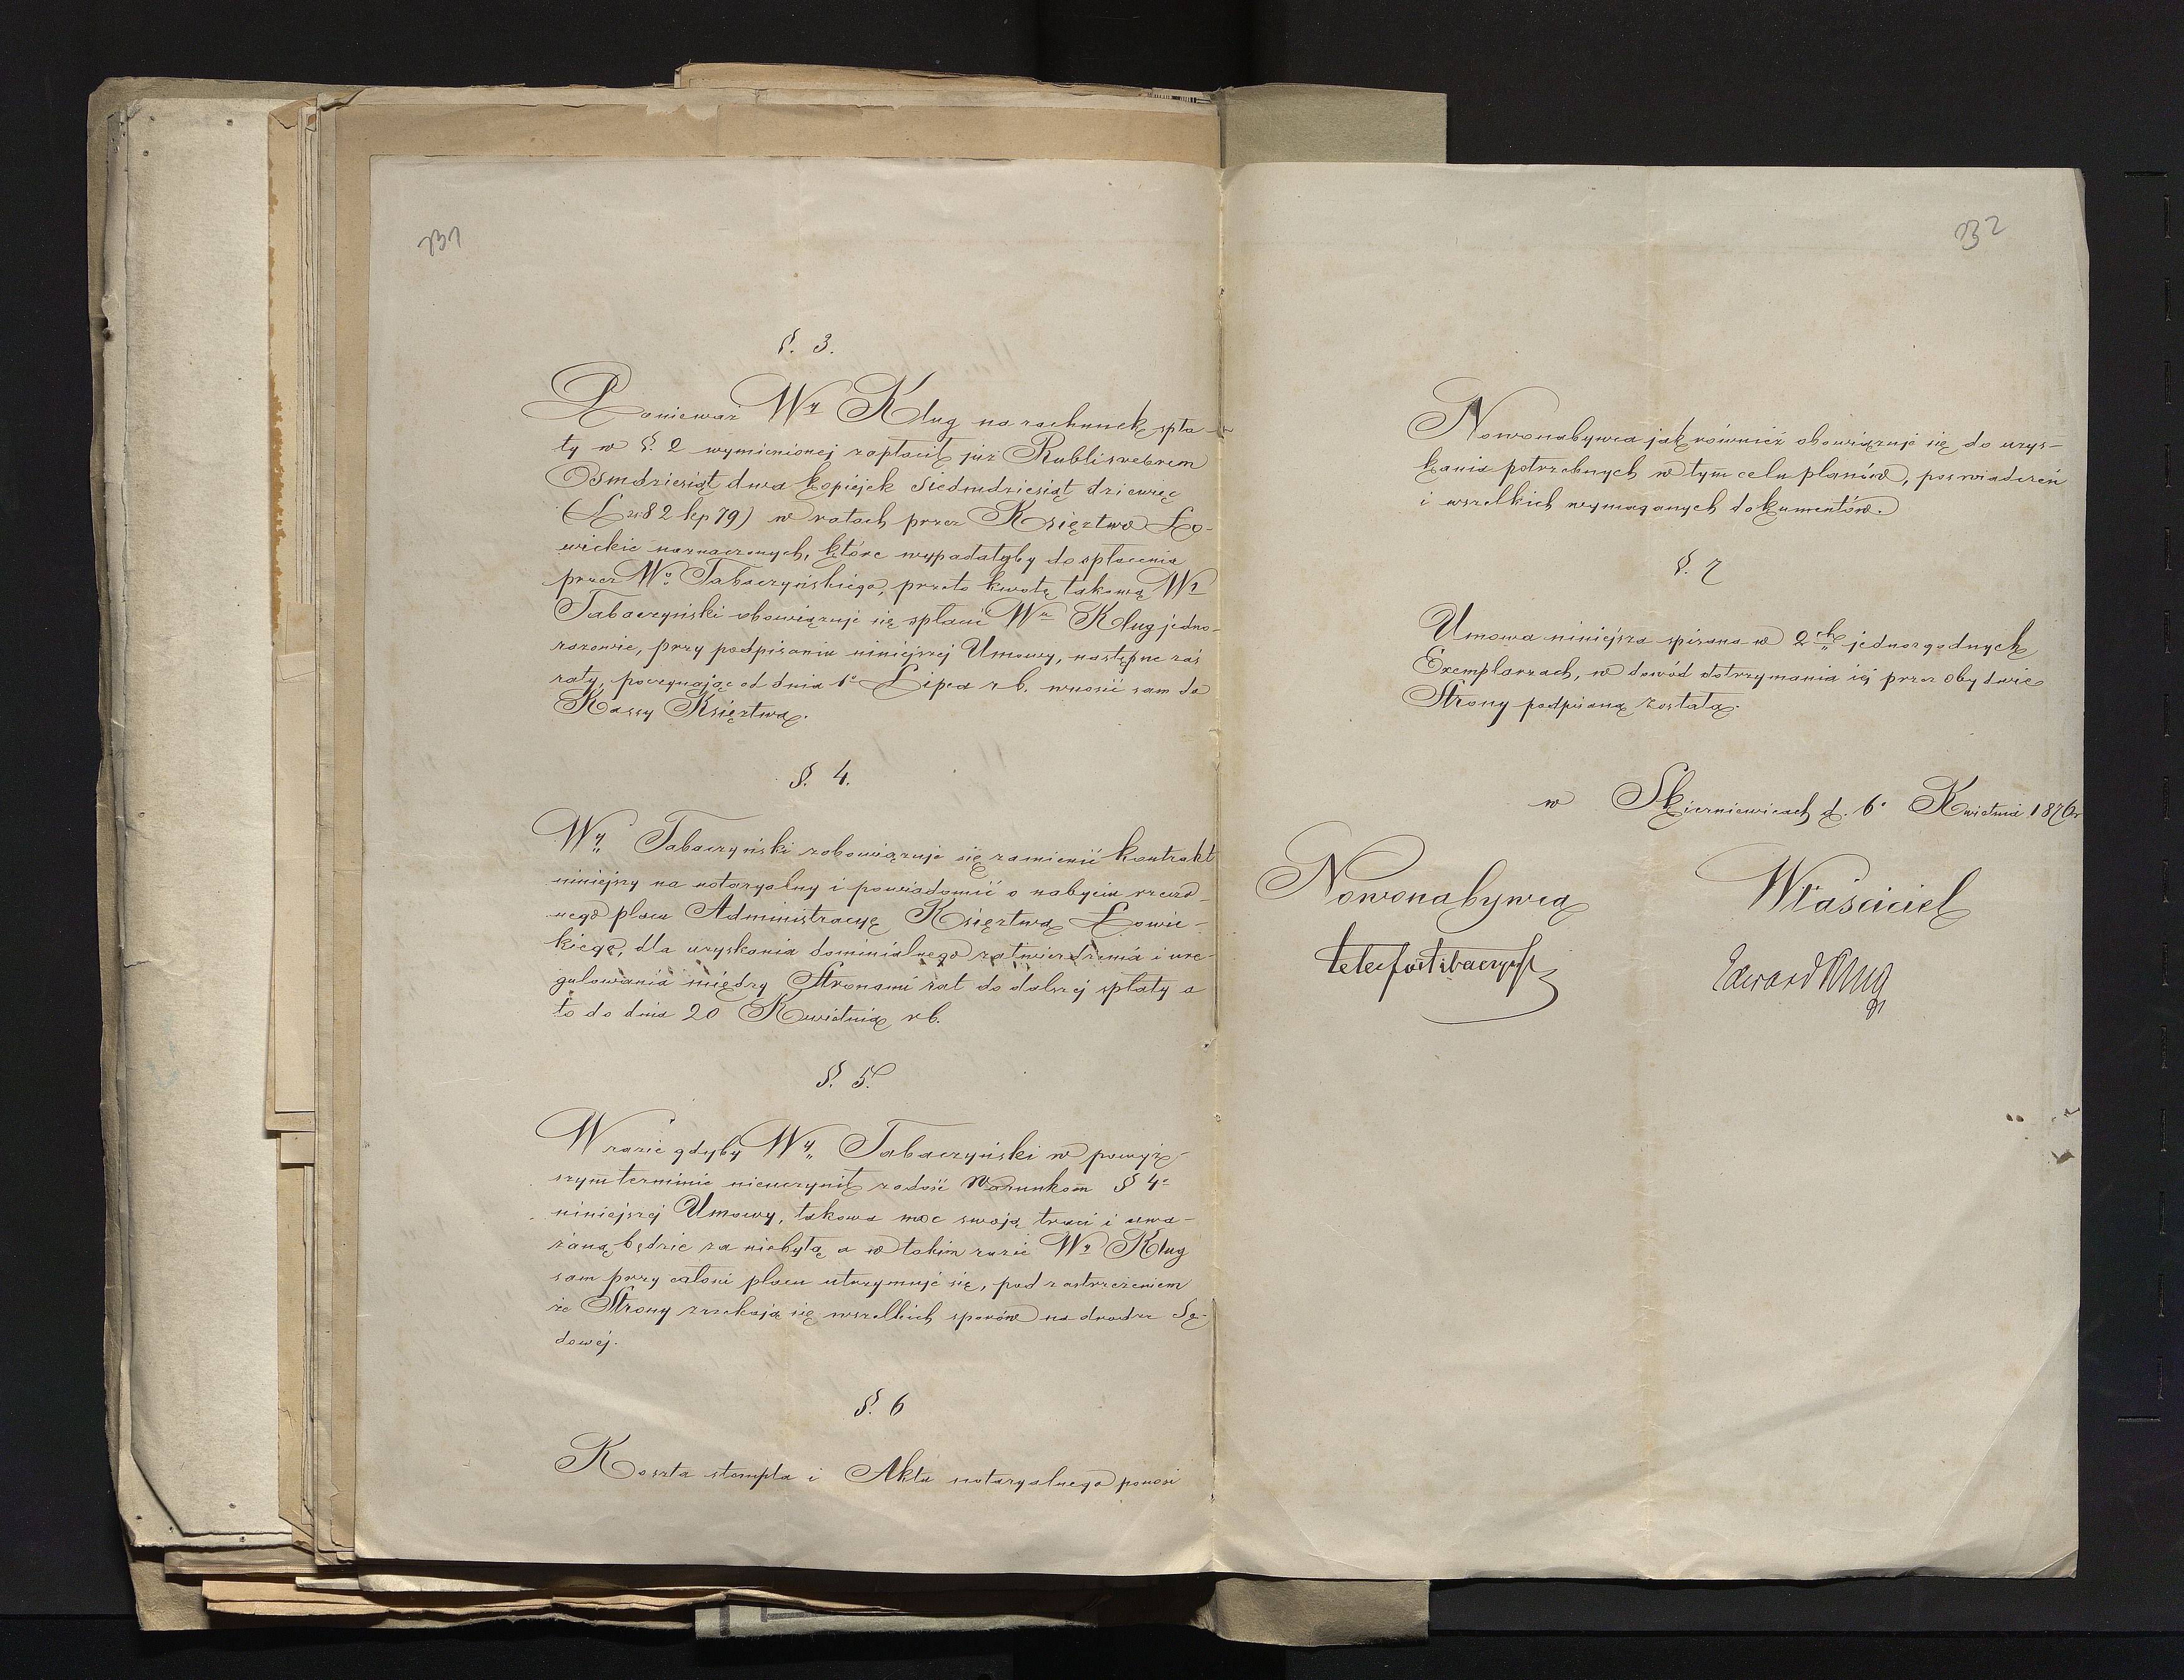 131
§. 3.
Ponieważ Wy Klug na rachunek spła-
ty w §. 2 wymienionej zapłacił już Rubli srebrem
Osmdziesiąt dwa kopiejek siedmdziesiąt dziewięć
(Rs 82 kp 79) w ratach przez Księztwo Ło-
wickie naznaczonych, które wypadałyby do spłacenia
przez Wo Tabaczyńskiego, przeto kwotę takową Wy
Tabaczyński obowiązuje się spłacić Wu Klug jedno-
razowie, przy podpisaniu niniejszej Umowy, następne zaś
raty, poczynając od dnia 1o Lipca r b. wnosić sam do
Kassy Księztwa.
§. 4.
Wy Tabaczyński zobowiązuje się zamienić kontrakt
niniejszy na notaryalny i powiadomić o nabyciu rzeczo-
nego placu Administracyę Księztwa Łowic-
kiego, dla uzyskania dominialnego zatwierdzenia i ure-
gulowania między Stronami rat do dalszej spłaty a
to do dnia 20 Kwietnia r b.
§. 5.
W razie gdyby Wy Tabaczyński w powyż-
szym terminie nieuczynił zadość Warunkom § 4o
niniejszej Umowy, takowa moc swoją traci i uwa-
żaną będzie za niebyłą a w takim razie Wy Klug
sam przy całości placu utrzymuje się, pod zastrzeżeniem
że Strony zrzekają się wszelkich sporów na drodze Są-
dowej.
§. 6
Koszta stempla i Aktu notaryalnego ponosi
132
Nowonabywca jak również obowiązuje się do uzys-
kania potrzebnych w tym celu planów, poswiadczeń
i wszelkich wymaganych dokumentów.
§. 7
Umowa niniejsza spisana w 2ch jednozgodnych
Exemplarzach, w dowód dotrzymania jéj przez obydwie
Strony podpisaną została.
w Skierniewicach d. 6o Kwietnia 1876r
Nowonabywca
Właściciel
Edward Klug